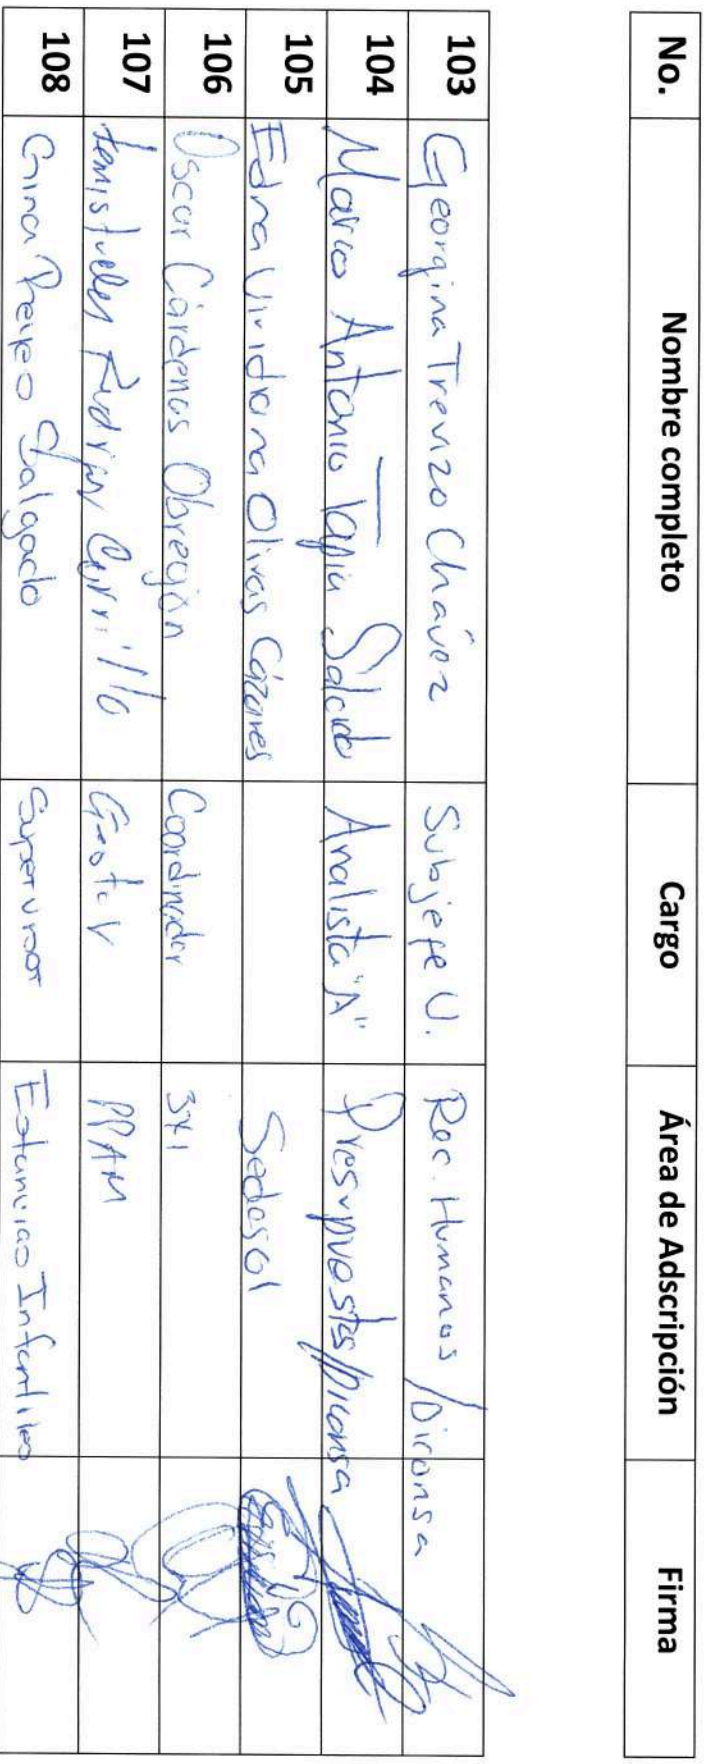 No. Nombre completo Cargo Área de Adscripción Firma
103 Georgina Trevizo Chávez Subjefe U. Rec. Humanos / Diconsa
104 Marco Antonio Tapia Salcido Analista "A" Presupuestos/Diconsa
105 Edna Viridiana Olivas Cázares Sedesol
106 Oscar Cárdenas Obregón Coordinador 3x1
107 Carrillo PPAM
108 Gina Salgado Supervisor Estancias Infantiles